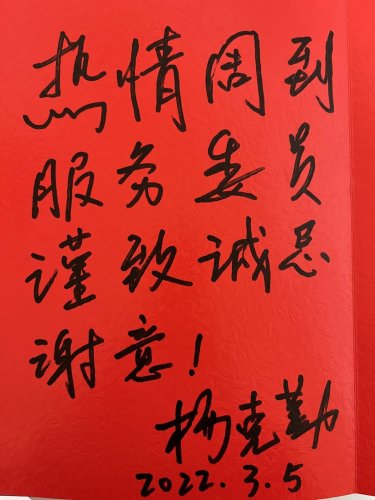 热情周到
服务委员
谨致诚忌
谢意！
杨克勤
2022.3.5